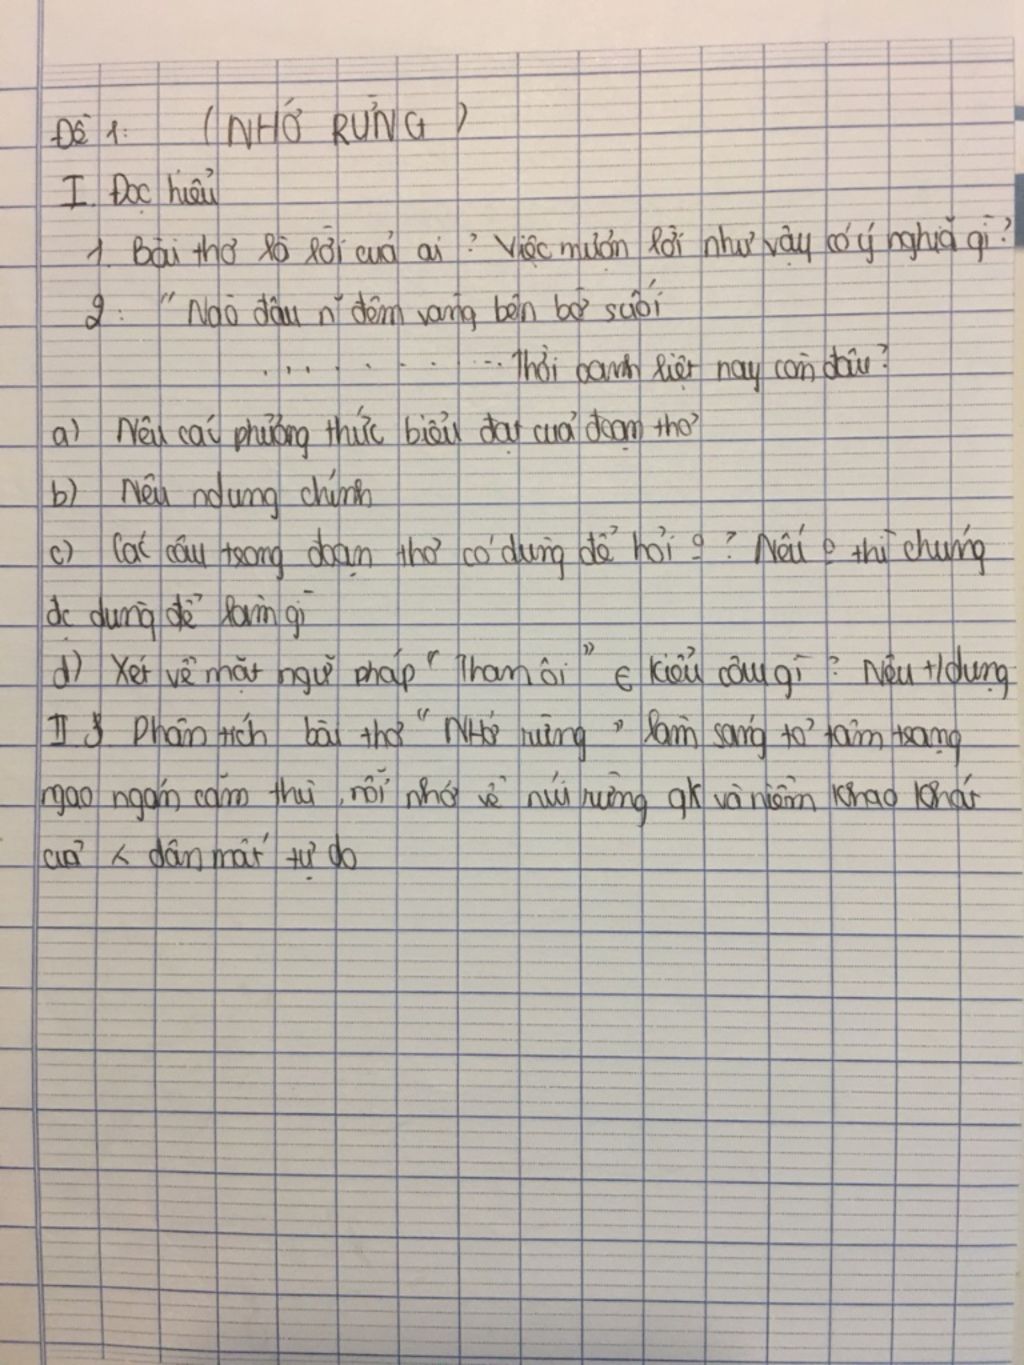 Đề 1: (NHỚ RỪNG)
I. Đọc hiểu
1. Bài thơ là lời của ai? Việc mượn lời như vậy có ý nghĩa gì?
2: "Nào đâu n~ đêm vàng bên bờ suối
............Thời oanh liệt nay còn đâu?
a) Nêu các phương thức biểu đạt của đoạn thơ
b) Nêu ndung chính
c) Các câu trong đoạn thơ có dùng để hỏi ? Nếu thì chúng
đc dùng để làm gì
d) Xét về mặt ngữ pháp "Than ôi" ∈ kiểu câu gì? Nêu t/dụng
II Phân tích bài thơ "NHớ rừng" làm sáng tỏ tâm trạng
ngao ngán căm thù, nỗi nhớ về núi rừng qk và niềm khao khát
của dân mất tự do